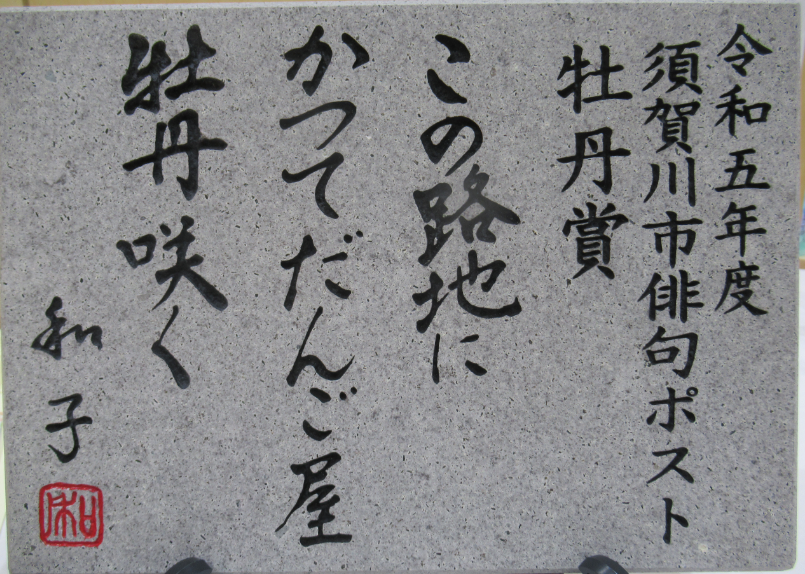 令和五年度
須賀川市俳句ポスト
牡丹賞
この路地に
かつてだんご屋
牡丹咲く
和子
和